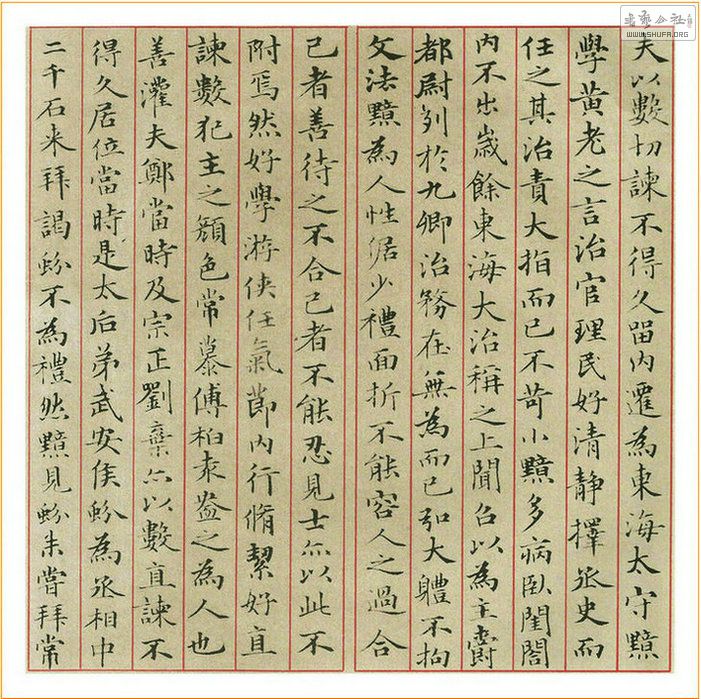 夫以數切諫不得久留內遷為東海太守黯
學黃老之言治官理民好清靜擇丞史而
任之其治責大指而已不苛小黯多病臥閨閤
內不出歲餘東海大治稱之上聞召以為主爵
都尉列於九卿治務在無為而已弘大體不拘
文法黯為人性倨少禮面折不能容人之過合
己者善待之不合己者不能忍見士亦以此不
附焉然好學游俠任氣節內行脩絜好直
諫數犯主之顏色常慕傅柏袁盎之為人也
善灌夫鄭當時及宗正劉棄亦以數直諫不
得久居位當時是太后弟武安侯蚡為丞相中
二千石來拜謁蚡不為禮然黯見蚡未嘗拜常
WWW.SHUFA.ORG